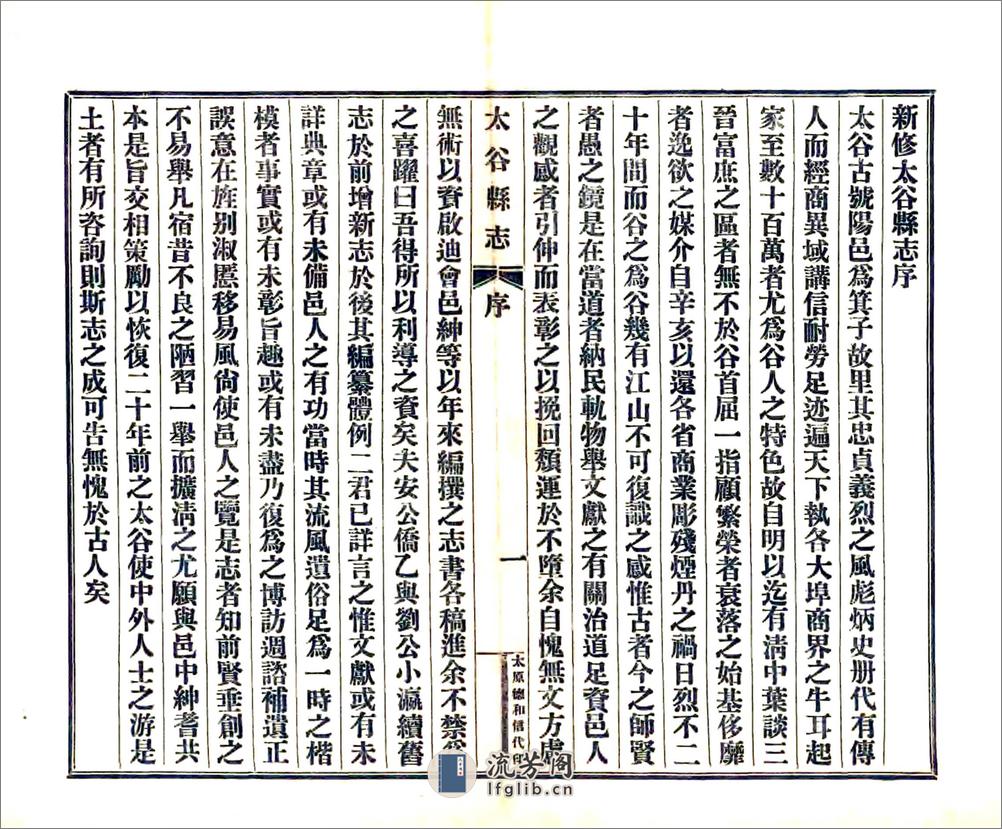 新修太谷縣志序
太谷古號陽邑爲箕子故里其忠貞義烈之風彪炳史册代有傳
人而經商異域講信耐勞足迹遍天下執各大埠商界之牛耳起
家至數十百萬者尤爲谷人之特色故自明以迄有淸中葉談三
晉富庶之區者無不於谷首屈一指顧繁榮者衰落之始基侈靡
者逸欲之媒介自辛亥以還各省商業彫殘煙丹之禍日烈不二
十年間而谷之爲谷幾有江山不可復識之感惟古者今之師賢
者愚之鏡是在當道者納民軌物舉文獻之有關治道足資邑人
之觀感者引伸而表彰之以挽回頽運於不墮余自愧無文方虞
太谷縣志 序 一 太原德和信代印
無術以資啟迪會邑紳等以年來編撰之志書各稿進余不禁爲
之喜躍曰吾得所以利導之資矣夫安公僑乙與劉公小瀛續舊
志於前增新志於後其編纂體例二君已詳言之惟文獻或有未
詳典章或有未備邑人之有功當時其流風遺俗足爲一時之楷
模者事實或有未彰旨趣或有未盡乃復爲之博訪週諮補遺正
誤意在旌别淑慝移易風尙使邑人之覽是志者知前賢垂創之
不易舉凡宿昔不良之陋習一舉而擴淸之尤願與邑中紳耆共
本是旨交相策勵以恢復二十年前之太谷使中外人士之游是
土者有所咨詢則斯志之成可吿無愧於古人矣
流芳閣
lfglib.cn